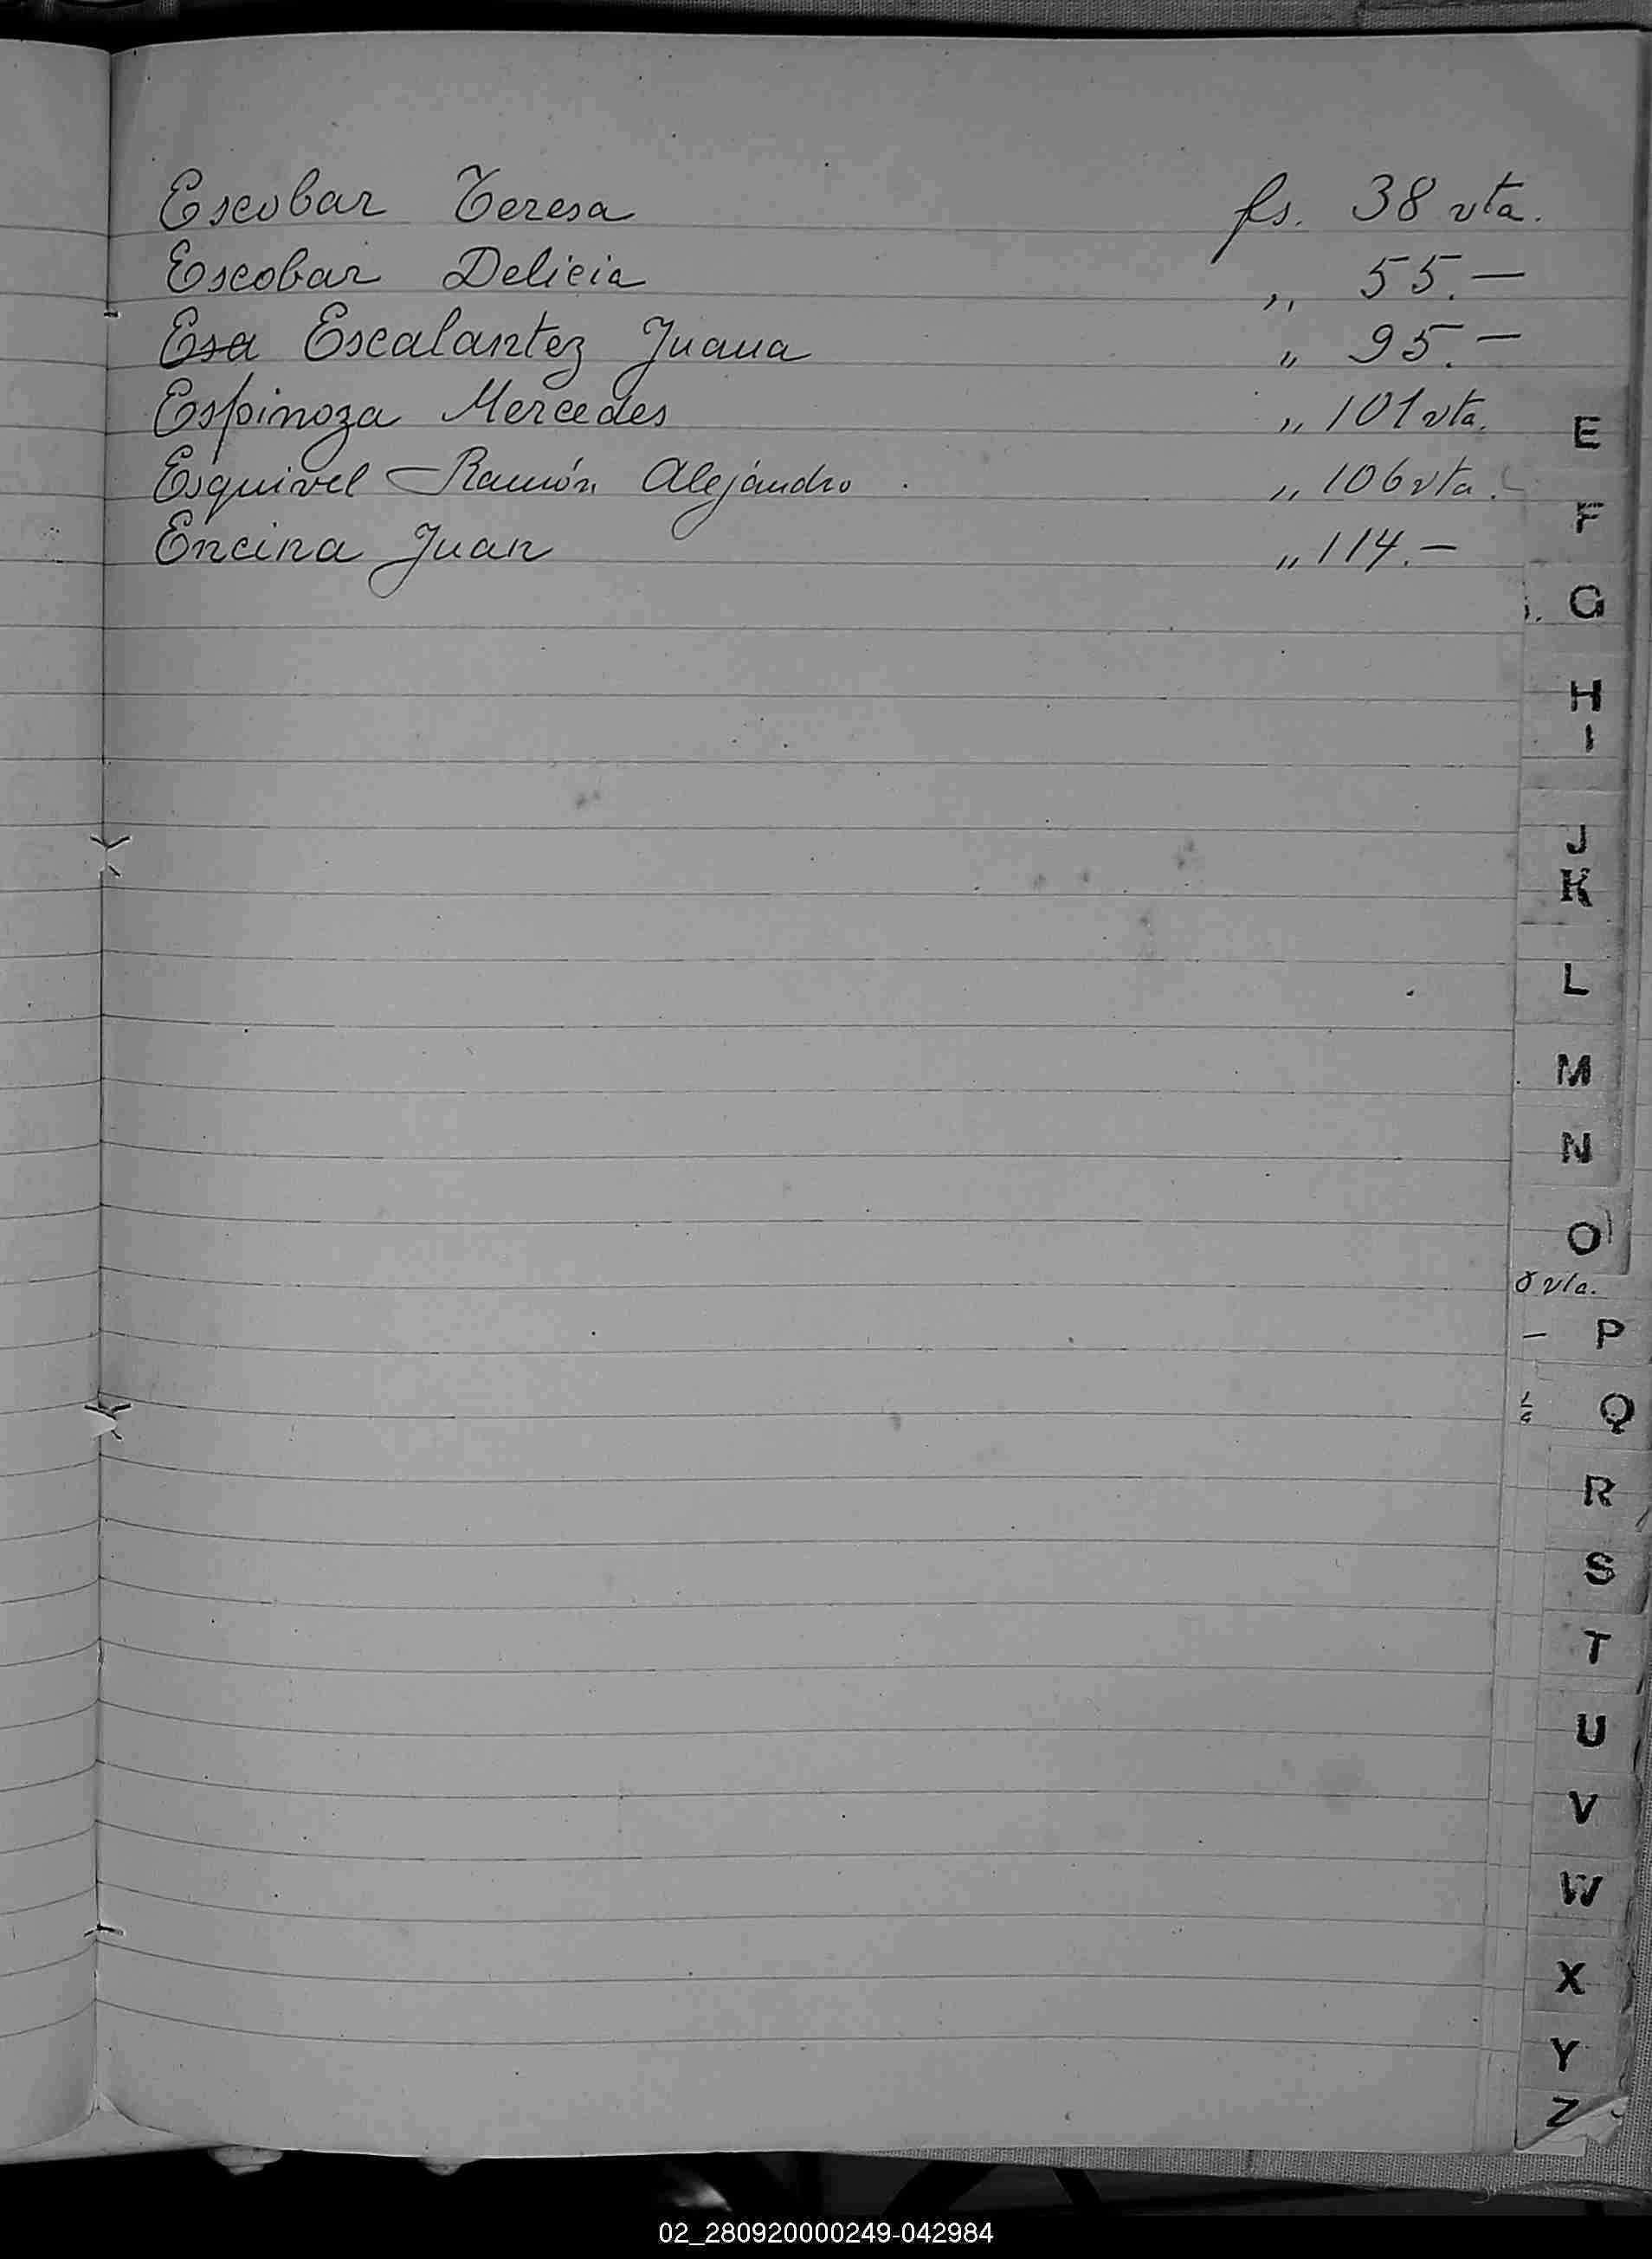 Escobar Teresa fs. 38 vta.
Escobar Delicia „ 55.—
Esa Escalantez Juana „ 95.—
Espinoza Mercedes „ 101 vta.
Esquivel Ramón Alejandro . „ 106 vta.
Encina Juan „ 114.—
E
F
G
H
I
J
K
L
M
N
O
vta.
P
Q
R
S
T
U
V
W
X
Y
Z
02_280920000249-042984